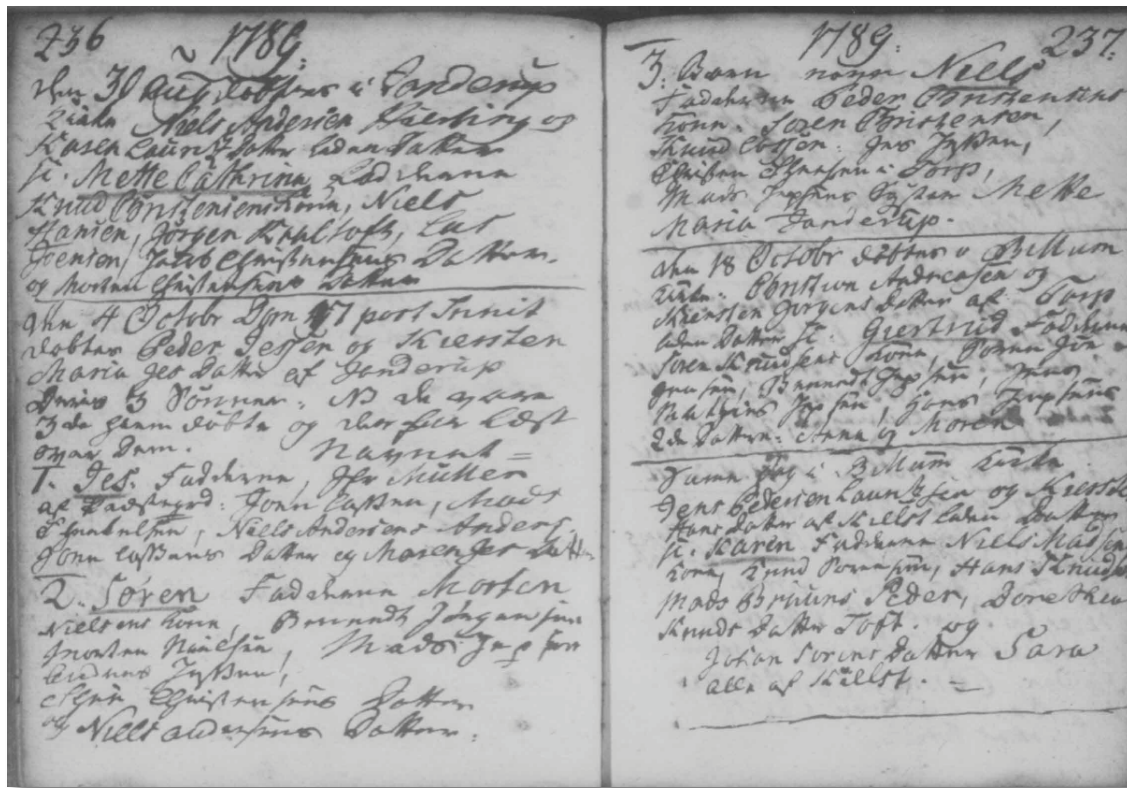 236 1789.
den 30 Aug. døbtes i Janderup
Kirke Niels Andersen Kierting og
Karen Lauritz Datter liden Datter
k. Mette Cathrina, Fadderne
Knud Christensens Kone, Niels
Hansen, Jørgen Knoltoft, Las
Joensen, Jacob Christensens Datter
og Morten Christensens Datter
den 4 Octobr Dom 17 post Trinit
døbtes Peder Jessen og Kiersten
Maria Jes Datter af Janderup
Deres 3 Sønner. NB de vare
3 da hiem døbte og
over Dem. Navnet =
1. Jes. Fadderne, Hr Müller
af Præstegrd: John Lassen, Mads
Niels Andersens Anders
John Lassens Datter og Maren Jes Datt
2. Søren Fadderne Morten
Nielsens Kone, Berendt Jørgensen
Morten Nielsen, Mads Jepsen
Jessen,
Christensens Datter
og Niels Andersens Datter.
1789. 237.
3. Barn navn Niels
Fadderne Peder Christensens
Kone. Søren Christensen,
Knud Lassen. Jes Jessen,
Christen Hansen i Torp,
Mads Jepsens Søster Mette
Maria Janderup.
den 18 Octobr døbtes i Billum
Kirke. Christian Andreasen og
Kiersten Jørgens Datter af Torp
liden Datter k. Giertrud Fadderne
Søren Knudsens Kone, Søren Jen
Jensen, Berendt Jepsen, Jens
Mathias Jepsen, Hans Jepsens
2de Døttre. Anna og Maren
Samme Dag i Billum Kirke
Jens Pedersen Lauritzen og Kierste
Hans Datter af Kielst liden Datter
k. Karen Fadderne Niels Madsens
Kone, Knud Sørensen, Hans Knuds
Mads Bruuns Peder, Dorethea
Knuds Datter Toft. og
Johan Sørens Datter Sara
alle af Kielst.